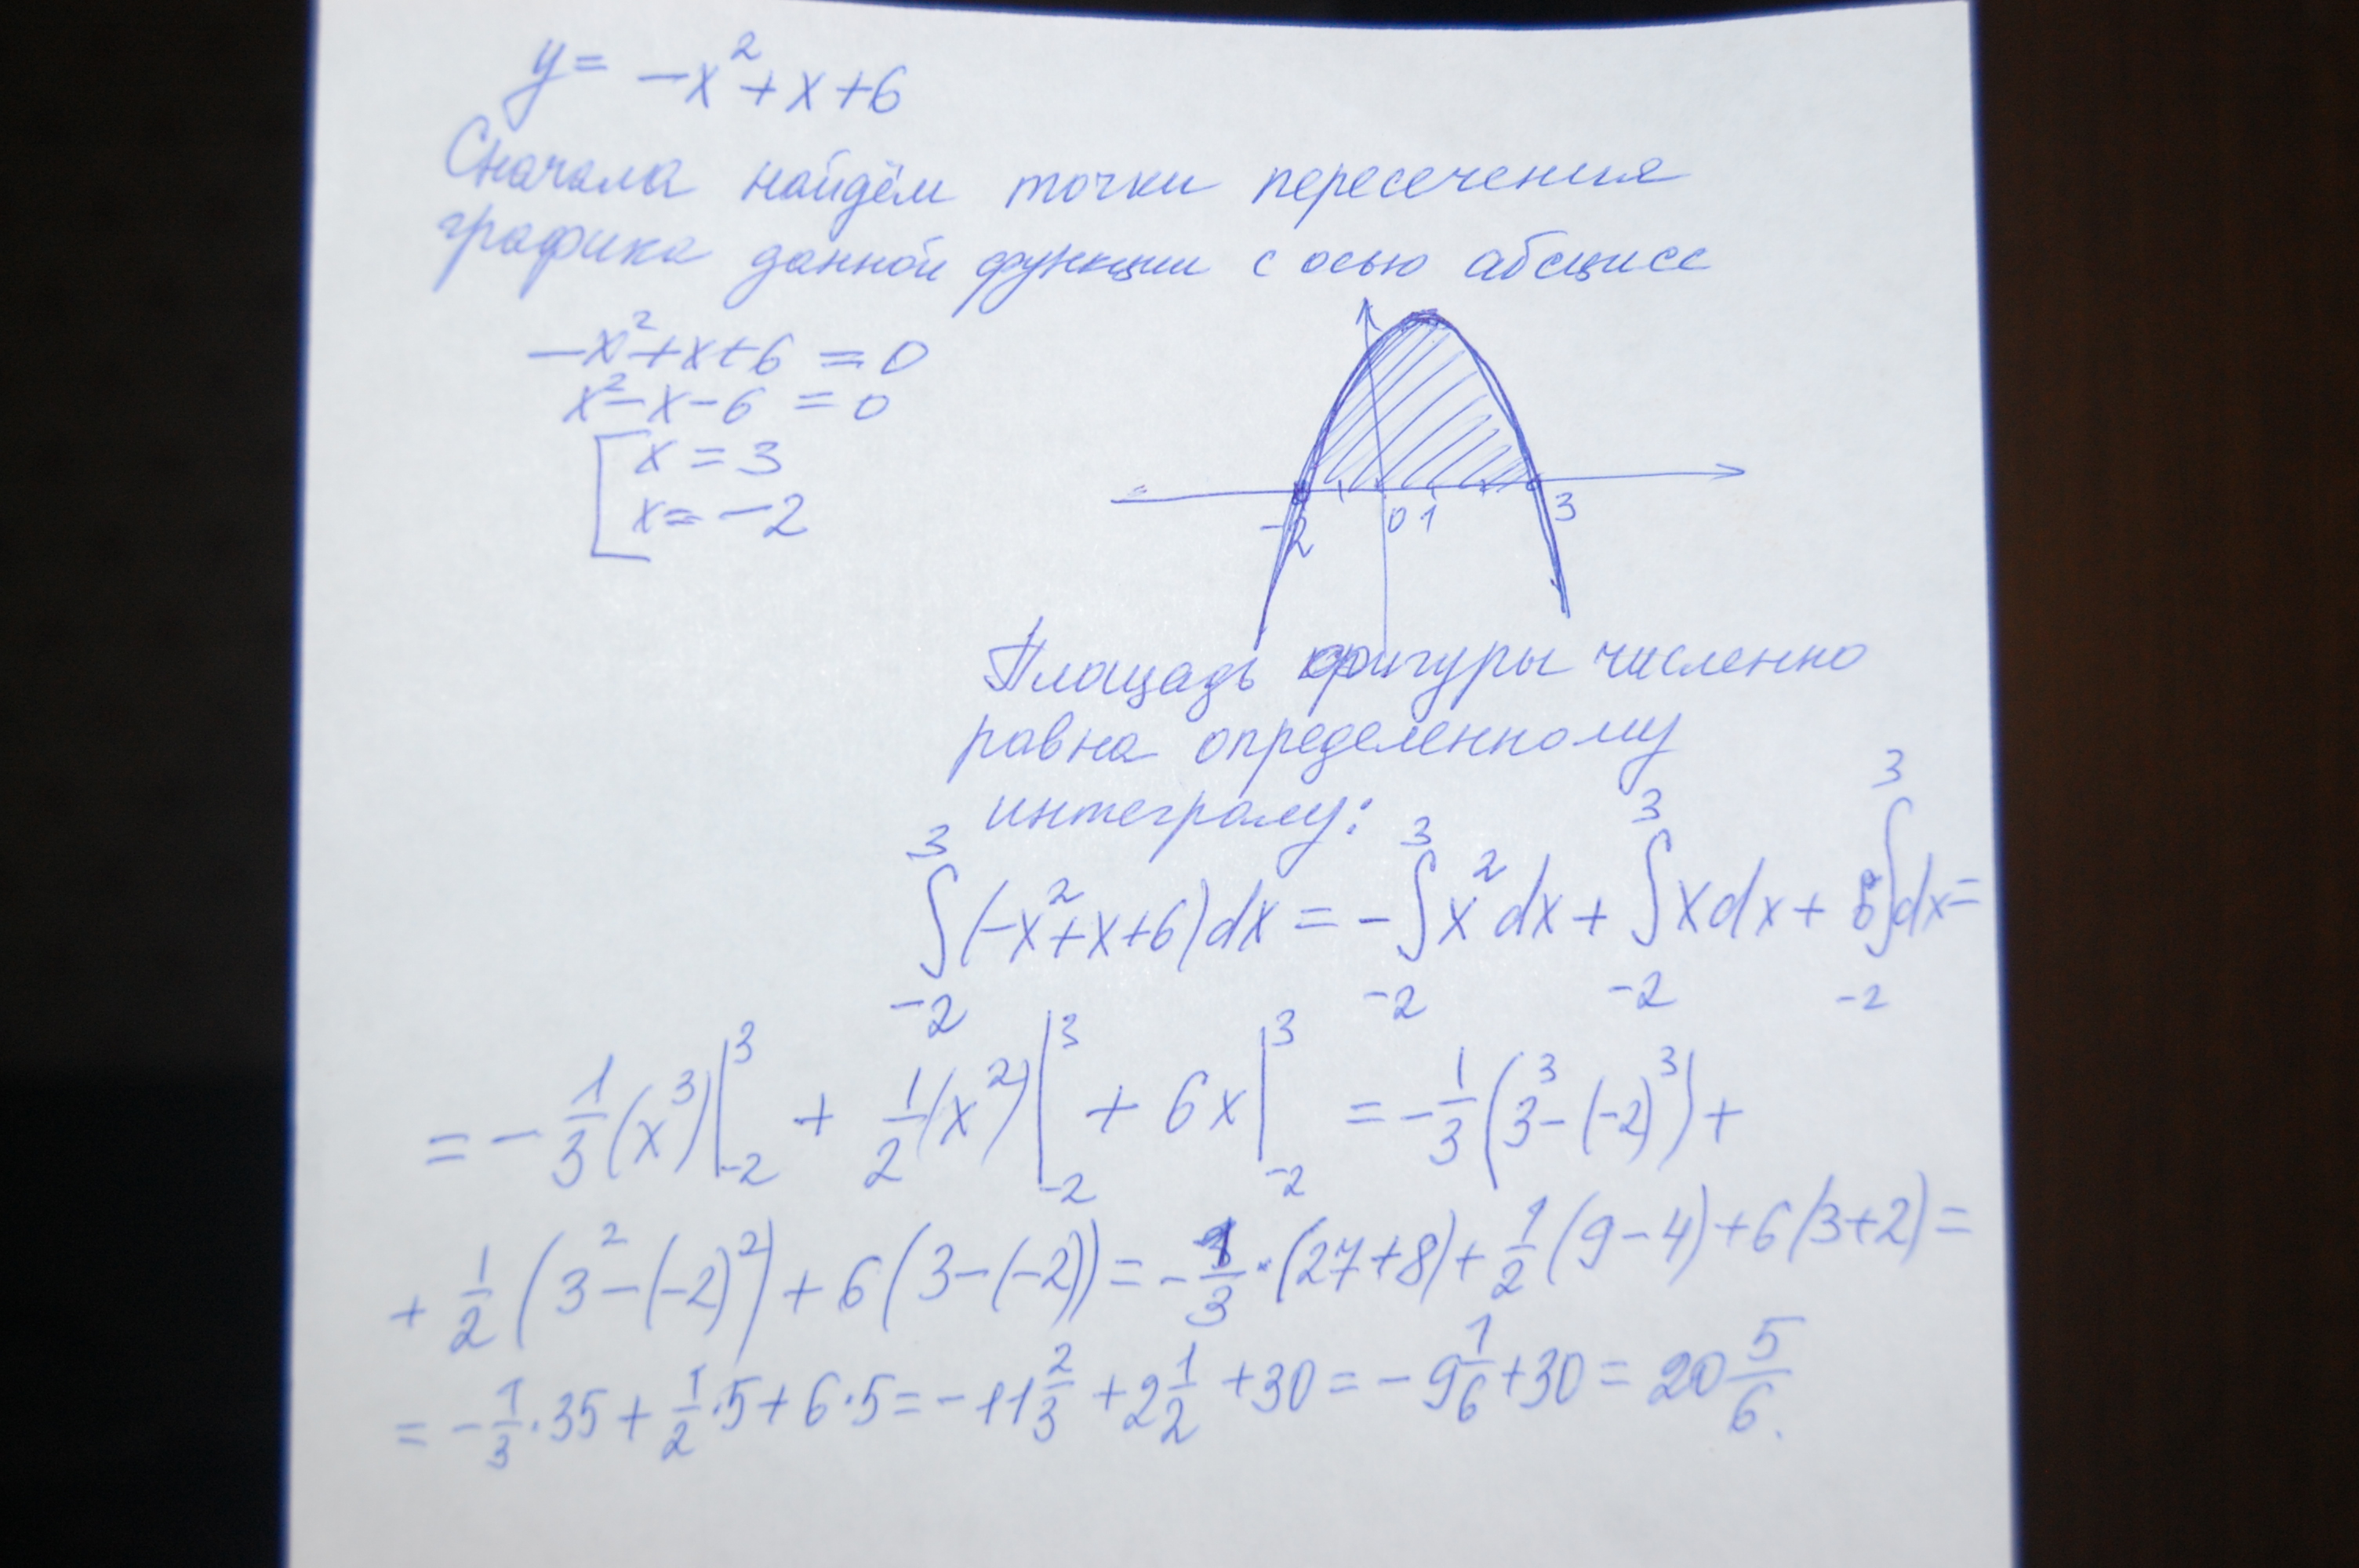 y = -x² + x + 6
Сначала найдём точки пересечения
графика данной функции с осью абсцисс
-x² + x + 6 = 0
x² - x - 6 = 0
[ x = 3
x = -2
-2 0 1 3
Площадь фигуры численно
равна определенному
интегралу:
∫₋₂³ (-x² + x + 6) dx = - ∫₋₂³ x² dx + ∫₋₂³ x dx + 6 ∫₋₂³ dx =
= - 1/3 (x³) |₋₂³ + 1/2 (x²) |₋₂³ + 6x |₋₂³ = - 1/3 (3³ - (-2)³) +
+ 1/2 (3² - (-2)²) + 6 (3 - (-2)) = - 1/3 · (27 + 8) + 1/2 (9 - 4) + 6 (3 + 2) =
= - 1/3 · 35 + 1/2 · 5 + 6 · 5 = - 11 2/3 + 2 1/2 + 30 = - 9 1/6 + 30 = 20 5/6.